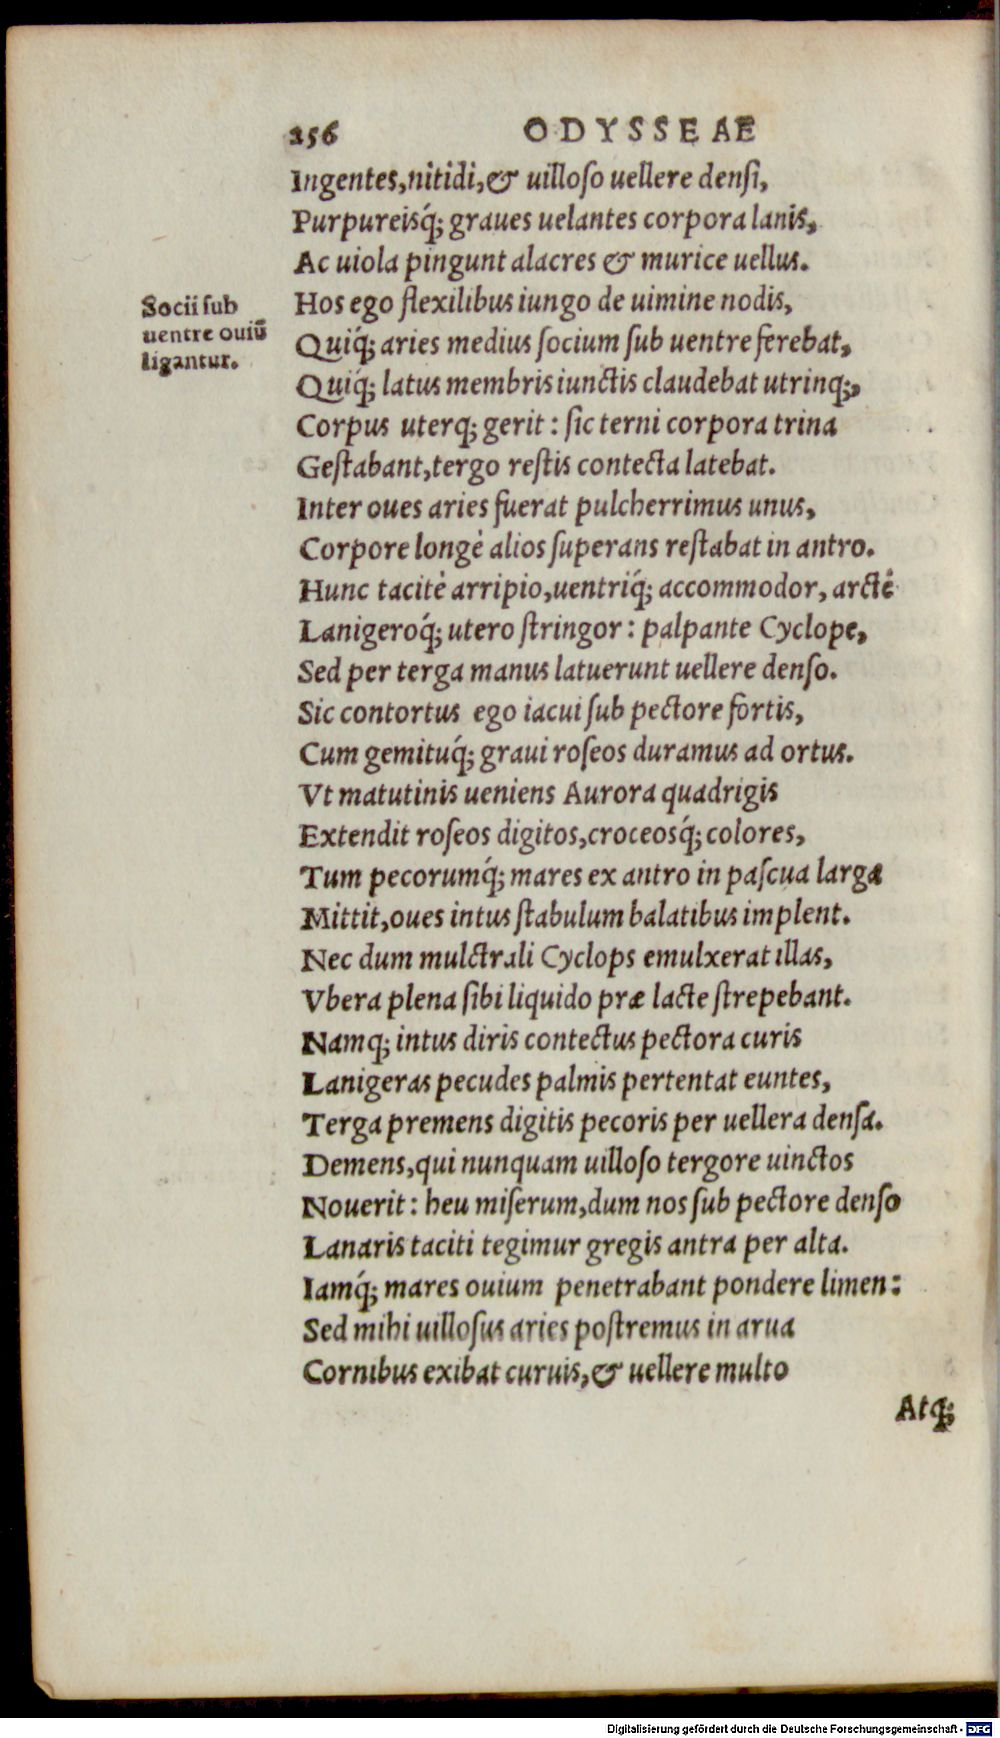 256 ODYSSEAE
Ingentes,nitidi,& uilloso uellere densi,
Purpureisq́; graues uelantes corpora lanis,
Ac uiola pingunt alacres & murice uellus.
Socii sub
uentre ouiū
ligantur.
Hos ego flexilibus iungo de uimine nodis,
Quiq́; aries medius socium sub uentre ferebat,
Quiq́; latus membris iunctis claudebat utrinq;,
Corpus uterq; gerit : sic terni corpora trina
Gestabant,tergo restis contecta latebat.
Inter oues aries fuerat pulcherrimus unus,
Corpore longè alios superans restabat in antro.
Hunc tacitè arripio,uentriq́; accommodor, arctè
Lanigeroq́; utero stringor : palpante Cyclope,
Sed per terga manus latuerunt uellere denso.
Sic contortus ego iacui sub pectore fortis,
Cum gemituq́; graui roseos duramus ad ortus.
Vt matutinis ueniens Aurora quadrigis
Extendit roseos digitos,croceosq́; colores,
Tum pecorumq́; mares ex antro in pascua larga
Mittit,oues intus stabulum balatibus implent.
Nec dum mulctrali Cyclops emulxerat illas,
Vbera plena sibi liquido præ lacte strepebant.
Namq; intus diris contectus pectora curis
Lanigeras pecudes palmis pertentat euntes,
Terga premens digitis pecoris per uellera densa.
Demens,qui nunquam uilloso tergore uinctos
Nouerit : heu miserum,dum nos sub pectore denso
Lanaris taciti tegimur gregis antra per alta.
Iamq́; mares ouium penetrabant pondere limen:
Sed mihi uillosus aries postremus in arua
Cornibus exibat curuis,& uellere multo
Atq;
Digitalisierung gefördert durch die Deutsche Forschungsgemeinschaft - DFG